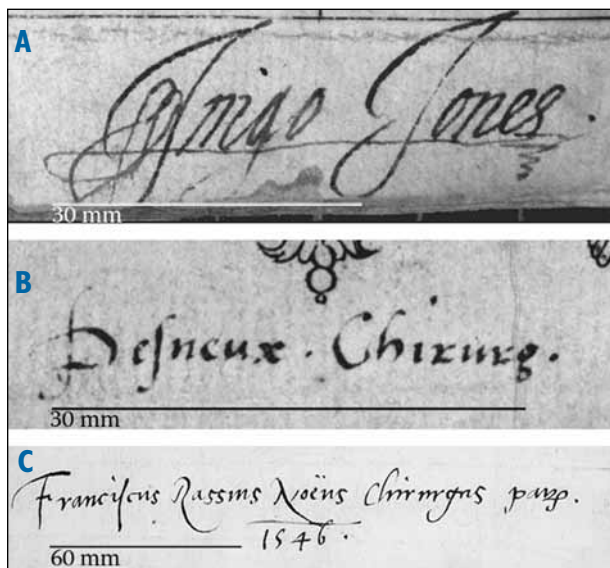 A
Inigo Jones.
30 mm
B
Desneux . Chirurg .
30 mm
C
Franciscus Rassius Noëus Chirurgus
1546 .
60 mm